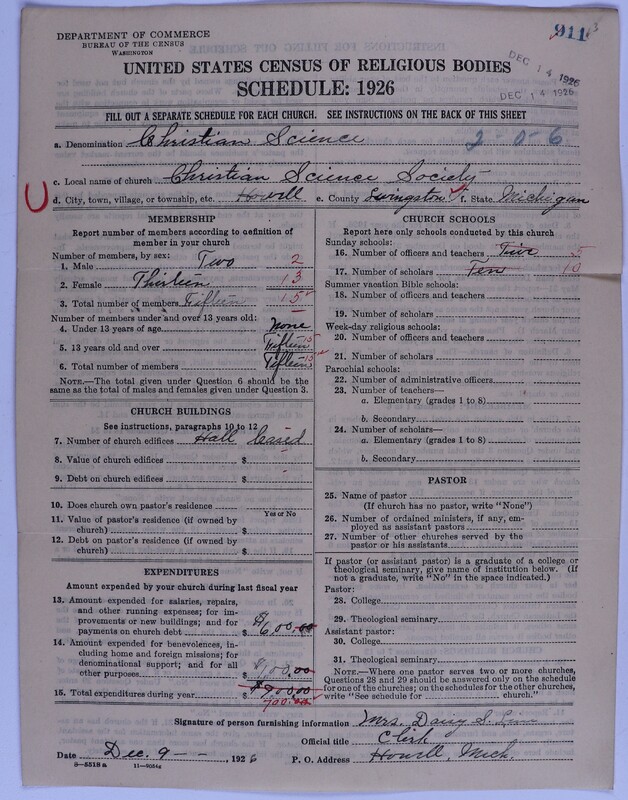 DEPARTMENT OF COMMERCE
BUREAU OF THE CENSUS
WASHINGTON
911
3
DEC 14 1926
DEC 14 1926
UNITED STATES CENSUS OF RELIGIOUS BODIES
SCHEDULE: 1926
FILL OUT A SEPARATE SCHEDULE FOR EACH CHURCH. SEE INSTRUCTIONS ON THE BACK OF THIS SHEET
a. Denomination Christian Science 2-0-6
c. Local name of church Christian Science Society
d. City, town, village, or township, etc. Howell e. County Livingston f. State Michigan
MEMBERSHIP
Report number of members according to definition of
member in your church
Number of members, by sex:
1. Male Two 2
2. Female Thirteen 13
3. Total number of members Fifteen 15
Number of members under and over 13 years old:
4. Under 13 years of age None
5. 13 years old and over Fifteen 15
6. Total number of members Fifteen 15
NOTE.—The total given under Question 6 should be the
same as the total of males and females given under Question 3.
CHURCH BUILDINGS
See instructions, paragraphs 10 to 12
7. Number of church edifices Hall leased
8. Value of church edifices $
9. Debt on church edifices $
10. Does church own pastor's residence
Yes or No
11. Value of pastor's residence (if owned by
church) $
12. Debt on pastor's residence (if owned by
church) $
EXPENDITURES
Amount expended by your church during last fiscal year
13. Amount expended for salaries, repairs,
and other running expenses; for im-
provements or new buildings; and for
payments on church debt $ $600.00
14. Amount expended for benevolences, in-
cluding home and foreign missions; for
denominational support; and for all
other purposes $ 100.00
15. Total expenditures during year $
700.00
CHURCH SCHOOLS
Report here only schools conducted by this church
Sunday schools:
16. Number of officers and teachers Five 5
17. Number of scholars Ten 10
Summer vacation Bible schools:
18. Number of officers and teachers
19. Number of scholars
Week-day religious schools:
20. Number of officers and teachers
21. Number of scholars
Parochial schools:
22. Number of administrative officers
23. Number of teachers—
a. Elementary (grades 1 to 8)
b. Secondary
24. Number of scholars—
a. Elementary (grades 1 to 8)
b. Secondary
PASTOR
25. Name of pastor
(If church has no pastor, write "None")
26. Number of ordained ministers, if any, em-
ployed as assistant pastors
27. Number of other churches served by the
pastor or his assistants
If pastor (or assistant pastor) is a graduate of a college or
theological seminary, give name of institution below. (If
not a graduate, write "No" in the space indicated.)
Pastor:
28. College
29. Theological seminary
Assistant pastor:
30. College
31. Theological seminary
NOTE.—Where one pastor serves two or more churches,
Questions 28 and 29 should be answered only on the schedule
for one of the churches; on the schedules for the other churches,
write "See schedule for church."
Signature of person furnishing information Mrs. Daisy S.
Official title Clerk
Date Dec. 9 1926 P. O. Address Howell, Mich.
8—5518 a 11—9054a